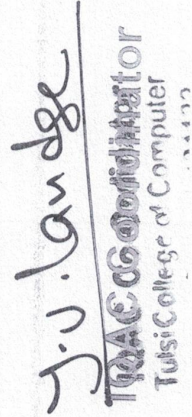 J.V. Landge
IQAC Co-ordinator
Tulsi College of Computer